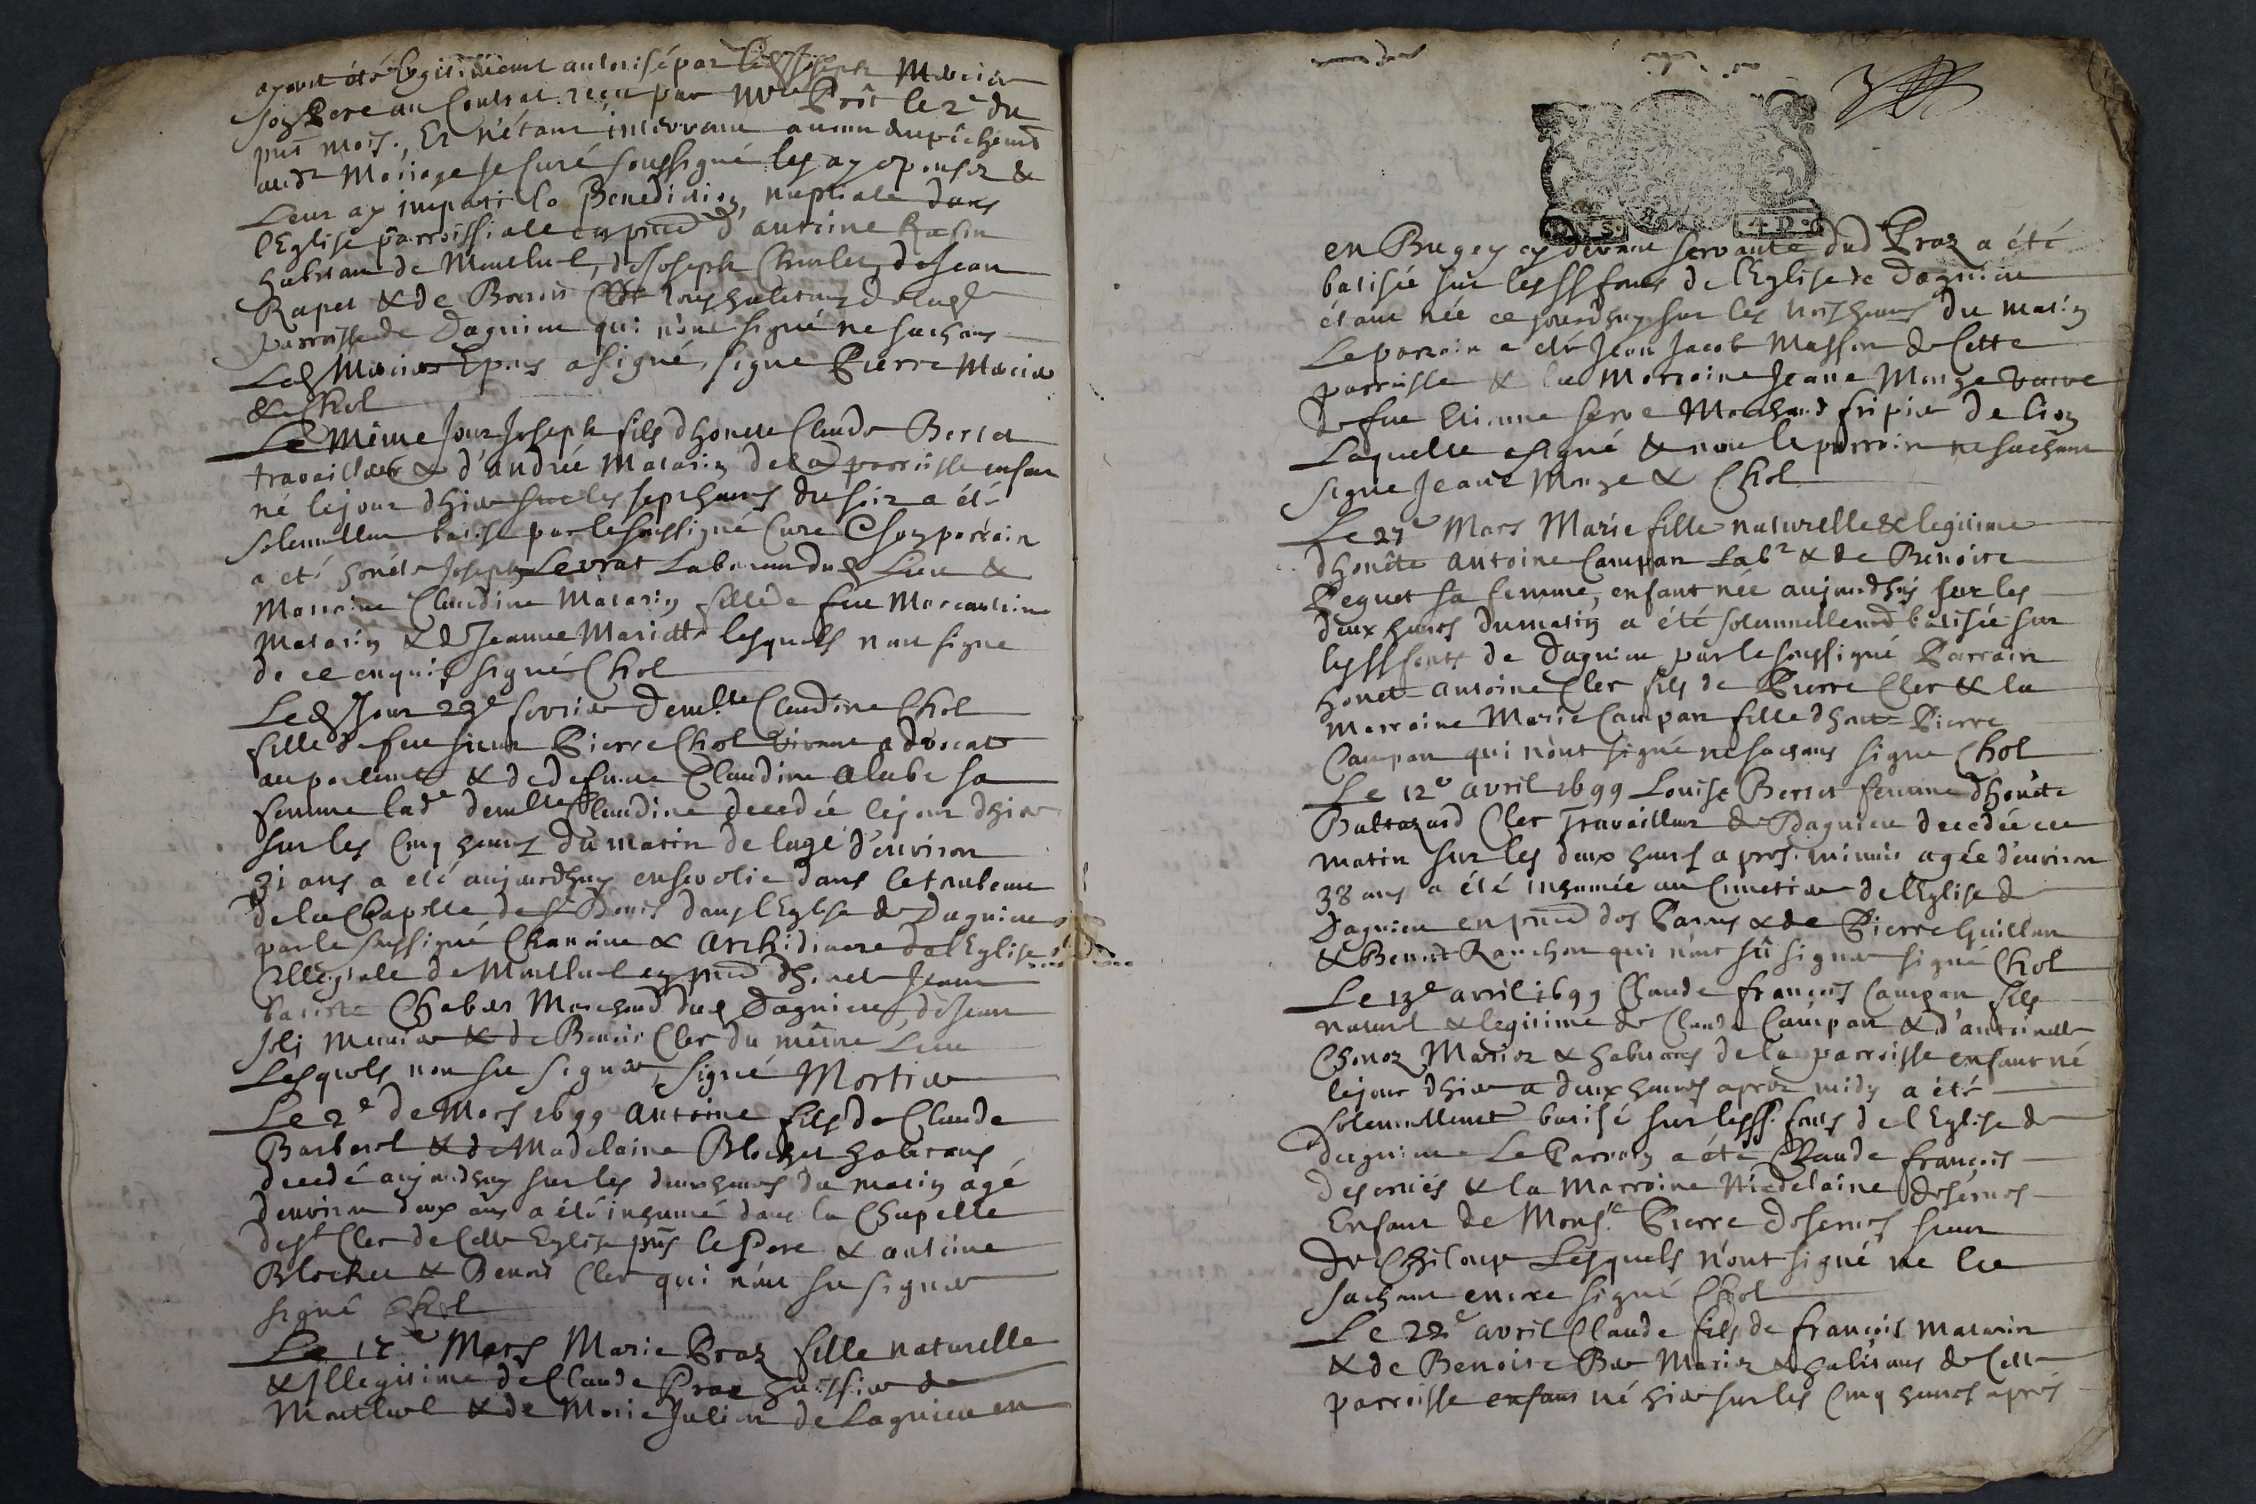 ayant été legitimement autorisé par led Joseph Mercier
son Pere au Contrat reçu par Mre Prôt le 2e du
pnt mois. Et n'étant intervenu aucun empêchemt
audt Mariage je Curé soussigné les ay epousez &
Leur ay imparti la Benediction nuptiale dans
l'Eglise parroissiale en pnce d'antoine Racin
habitant de Montluel, de Joseph Chorlet, de Jean
Rapet & de Benoit Cler tous habitans de lad
parroisse de Dagnieu qui n'ont signé ne sachans
Led Mercier Epous a signé, signe Pierre Mercier
& Chol
Le même Jour Joseph fils d'honete Claude Berset
travailleur & d'andrée Matarin de lad parroisse enfan
né le jour d'hier sur les sept heures du soir a été
solennellemt batisé par le soussigné Curé Son parrain
a eté honete Joseph Levrat Laboureur dud Lieu &
Marraine Claudine Matarin fille de feu Marc antoine
Matarin & de Jeanne Mariette lesquels n'ont signe
de ce enquis signé Chol
Led Jour 23e fevrier Demlle Claudine Chol
fille de feu sieur Pierre Chol vivant advocat
au parlemt & de defunte Claudine alabe sa
femme lade demlle Claudine decedée le jour d'hier
sur les Cinq heures du matin de l'age d'environ
31 ans a eté aujourdhuy ensevelie dans le tombeau
de la Chapelle de St Denis dans l'Eglise de Dagnieu
par le soussigné Chanoine & Archidiacre de l'Eglise
Collegiale de Montluel en pnce d'honet Jean
batiste Chaber Marchand dud Dagnieu, de Jean
Joli Munier & de Benoit Cler du même Lieu
Lesquels n'ont su signer, signé Mortier
Le 2e de Mars 1699 antoine fils de Claude
Barbaret & de Madelaine Blochet habitans
decedé aujourdhuy sur les deux heures du matin agé
d'environ deux ans a été inhumé dans la Chapelle
de St Cler de Cette Eglise pns le Pere & antoine
Blochet & Benoit Cler qui n'ont su signer
signé Chol
Le 17e Mars Marie Praz fille naturelle
& Illegitime de Claude Praz huissier de
Montluel & de Marie Julian de Lagnieu en
en Bugey cy devant servante dud Praz a été
batisée sur les SS fonts de l'Eglise de Dagnieu
étant née ce jourdhuy sur les trois heures du matin
Le parrain a été Jean Jacob Masson de Cette
parroisse & la Marraine Jeane Monze veuve
de feu Etienne Serve Marchand fripier de lion
Laquelle a signé & non le parrain ne sachant
signe Jeane Monze & Chol
Le 27e Mars Marie fille naturelle & legitime
d'honête antoine Campan Labr & de Benoite
Pequet sa femme, enfant née aujourdhuy sur les
deux heures du matin a été solennellemt batisée sur
les SS fonts de Dagnieu par le soussigné Parrain
honet antoine Cler fils de Pierre Cler & la
Marraine Marie Campan fille d'honete Pierre
Campan qui n'ont signé ne sachans signe Chol
Le 12e avril 1699 Louise Berset femme d'honête
Baltazard Cler Travailleur de Dagnieu decedée ce
matin sur les deux heures apres minuit agée d'environ
38 ans a été inhumée au Cimetiere de l'Eglise de
Dagnieu en pnce des Parens & de Pierre Guillon
& Benoit Ranchon qui n'ont sû signer signé Chol
Le 13e avril 1699 Claude françois Campan fils
naturel & legitime de Claude Campan & d'antoinette
Chonoz Mariez & habitans de la parroisse enfant né
le jour d'hier a deux heures aprés midy a été
solennellemt batisé sur les SS. fonts de l'Eglise de
Dagnieu Le Parrain a été Claude françois
Deserviés & la Marraine Madelaine
Enfant de Monsr Pierre sieur
de Chiloup Lesquels n'ont signé ne le
sachant encore signé Chol
Le 22e avril Claude fils de françois Matarin
& de Benoite Mariez & habitans de Cette
parroisse enfant né hier sur les Cinq heures aprés